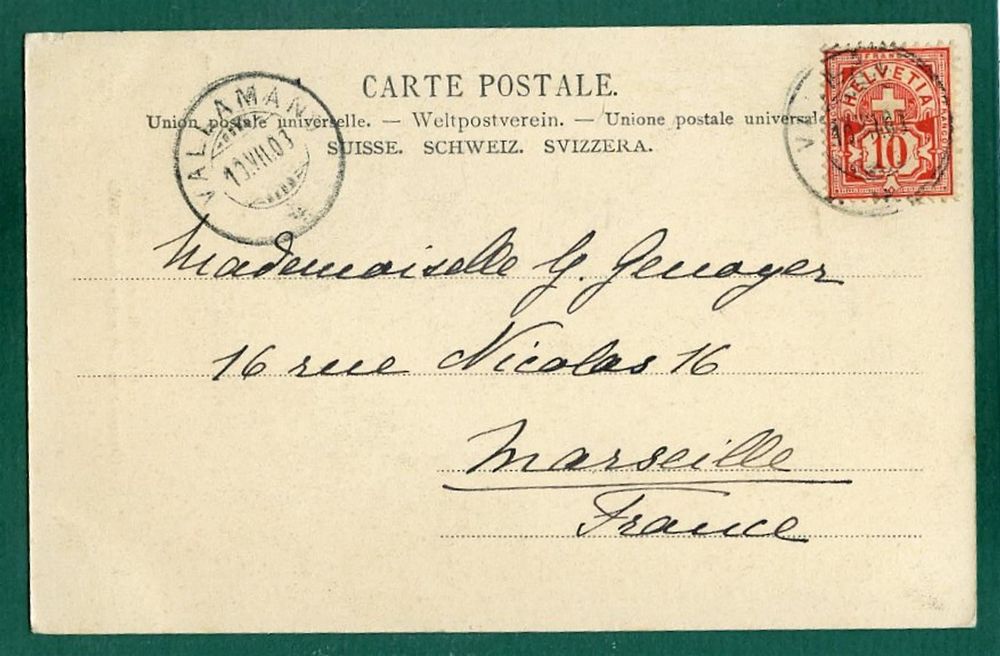 CARTE POSTALE.
Union postale universelle. — Weltpostverein. — Unione postale universale
SUISSE. SCHWEIZ. SVIZZERA.
VALLAMAND
10.VII.03
FRANCO
HELVETIA
10
Mademoiselle G. Genoyer
16 rue Nicolas 16
Marseille
France